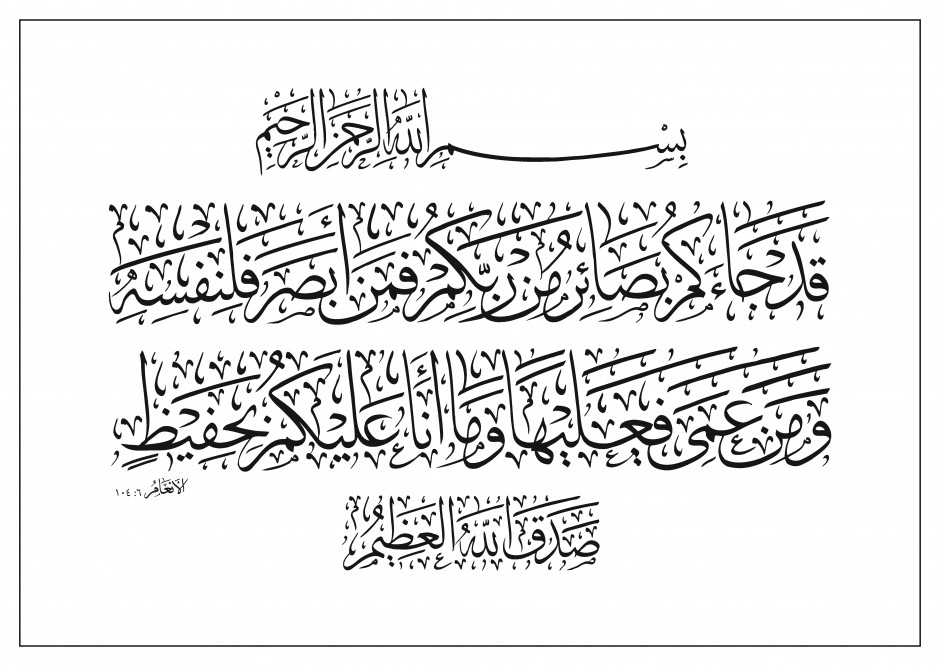 بِسْمِ اللَّهِ الرَّحْمَنِ الرَّحِيمِ
قَدْ جَاءَكُمْ بَصَائِرُ مِنْ رَبِّكُمْ فَمَنْ أَبْصَرَ فَلِنَفْسِهِ
وَمَنْ عَمِيَ فَعَلَيْهَا وَمَا أَنَا عَلَيْكُمْ بِحَفِيظٍ
الأَنْعَامُ ٦: ١٠٤
صَدَقَ اللَّهُ الْعَظِيمُ